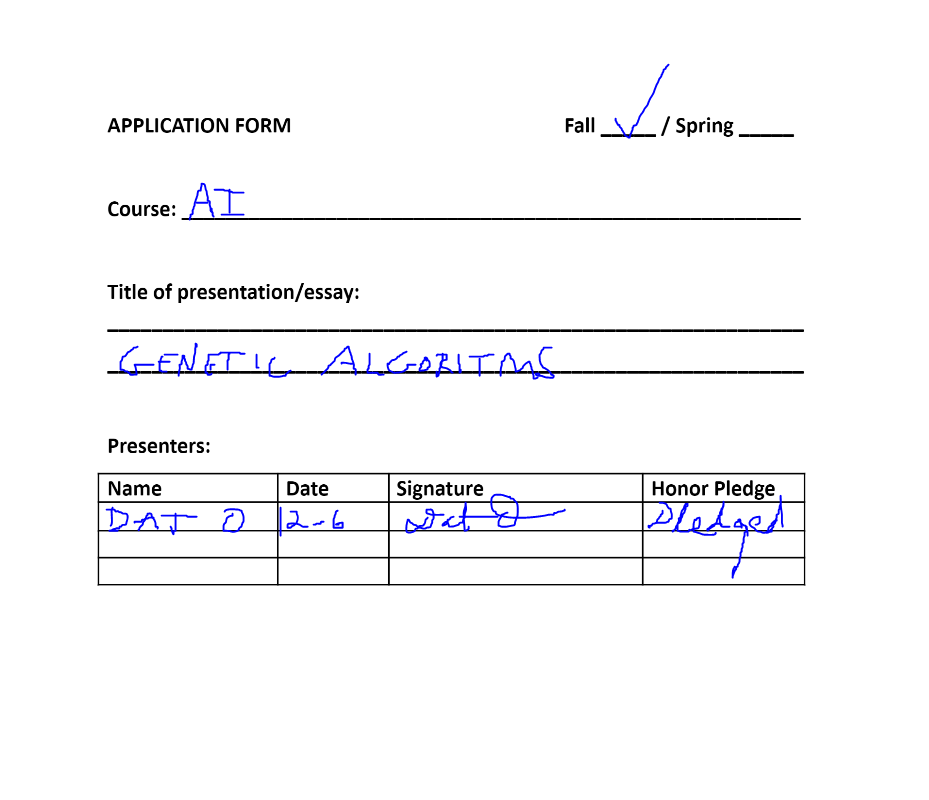 APPLICATION FORM Fall __✓__ / Spring _____
Course: AI
Title of presentation/essay:
GENETIC ALGORITMS
Presenters:
Name Date Signature Honor Pledge
DAT O 12-6 Dat O Pledged